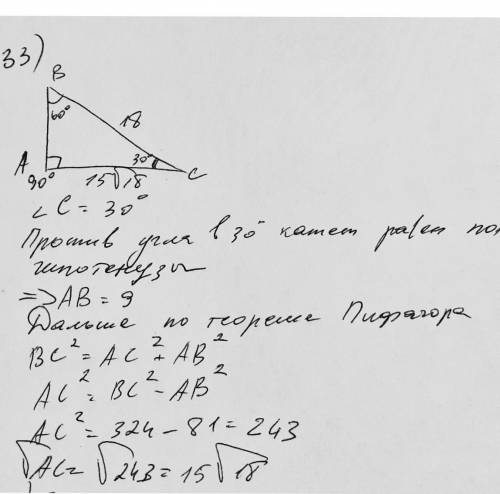 33)
B
60°
18
A
30°
C
90°
15√18
∠C = 30°
Против угла в 30° катет равен пол
гипотенузы
=> AB = 9
Дальше по теореме Пифагора
BC² = AC² + AB²
AC² = BC² - AB²
AC² = 324 - 81 = 243
√AC = √243 = 15√18